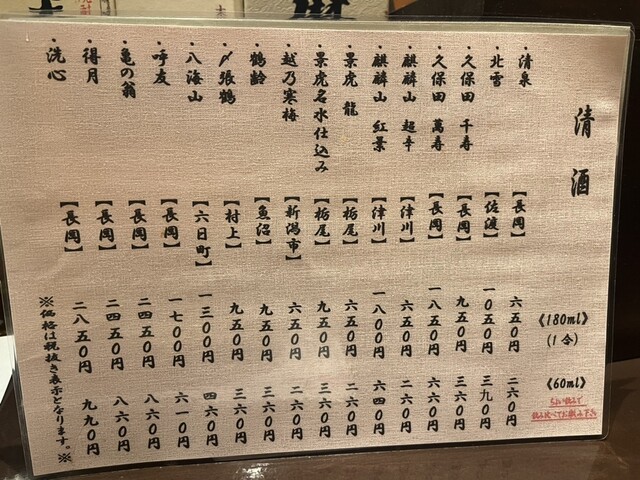 清酒 《180ml》 (1合) 《60ml》
・清泉 【長岡】 六五〇円 二六〇円
・北雪 【佐渡】 一〇五〇円 三九〇円
・久保田 千寿 【長岡】 九五〇円 三六〇円
・久保田 萬寿 【長岡】 一八五〇円 六六〇円
・麒麟山 超辛 【津川】 六五〇円 二六〇円
・麒麟山 紅景 【津川】 一八〇〇円 六四〇円
・景虎 龍 【栃尾】 六五〇円 二六〇円
・景虎名水仕込み 【栃尾】 九五〇円 三六〇円
・越乃寒梅 【新潟市】 六五〇円 二六〇円
・鶴齢 【魚沼】 九五〇円 三六〇円
・〆張鶴 【村上】 九五〇円 三六〇円
・八海山 【六日町】 一三〇〇円 四六〇円
・呼友 【長岡】 一七〇〇円 六一〇円
・亀の翁 【長岡】 二四五〇円 八六〇円
・得月 【長岡】 二四五〇円 八六〇円
・洗心 【長岡】 二八五〇円 九九〇円
※価格は税抜き表示となります。※